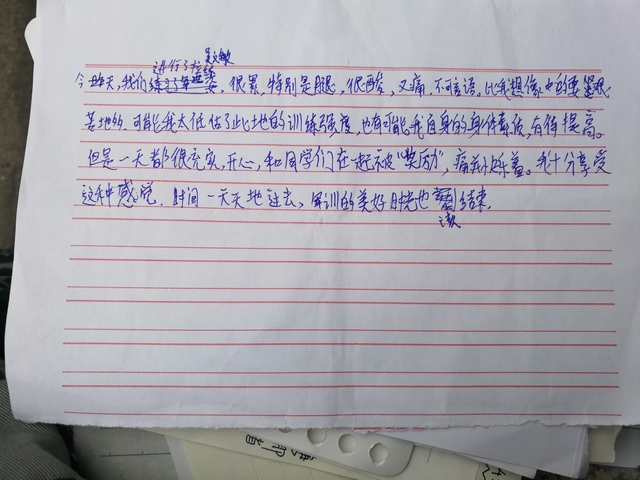 进行了拉练
昨天,我们,很累,特别是腿,很酸,又痛,不可言语。比我想像中的要艰
苦地多,可能我太低估了此地的训练强度,也有可能我自身的身体素质,有待提高。
但是一天都很充实,开心,和同学们在一起被“奖励”,痛并乐着。我十分享受
这种感觉,时间一天天地过去,军训的美好时光也该结束,